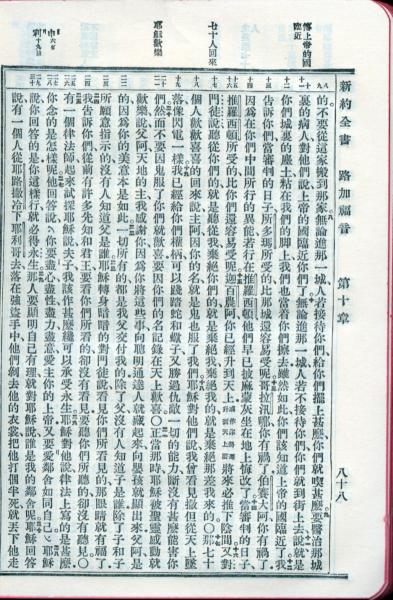 新約全書 路加福音 第十章 八十八
傳上帝的國臨近
七十人回來
耶穌歡樂
的不要從這家搬到那家無論進那一城人若接待你們給你們擺上甚麼你們就喫甚麼要醫治那城
裏的病人對他們說上帝的國臨近你們了無論進那一城人若不接待你們你們就到街上去說就是
你們城裏的塵土粘在我們的脚上我們也當着你們擦去雖然如此你們該知道上帝的國臨近了我
告訴你們當審判的日子所多瑪所受的比那城還容易受呢哥拉汛哪你有禍了伯賽大阿你有禍了
因為在你們中間所行的異能若行在推羅西頓他們早已披麻蒙灰坐在地上悔改了當審判的日子
推羅西頓所受的比你們還容易受呢迦百農阿你已經升到天上將來必推下陰間又對
門徒說聽從你們的就是聽從我棄絕你們的就是棄絕我棄絕我的就是棄絕那差我來的○那七十
個人歡歡喜喜的回來說主阿因你的名就是鬼也服了我們耶穌對他們說我曾看見撒但從天上墜
落像閃電一樣我已經給你們權柄可以踐踏蛇和蠍子又勝過仇敵一切的能力斷沒有甚麼能害你
們然而不要因鬼服了你們就歡喜要因你們的名記錄在天上歡喜○正當那時耶穌被聖靈感動就
歡樂說父阿天地的主我感謝你因為你將這些事向聰明通達人就藏起來向嬰孩就顯出來父阿是
的因為你的美意本是如此一切所有的都是我父交付我的除了父沒有人知道子是誰除了子和子
所願意指示的沒有人知道父是誰耶穌轉身暗暗的對門徒說看見你們所看見的那眼睛就有福了
我告訴你們從前有許多先知和君王要看你們所看的卻沒有看見要聽你們所聽的卻沒有聽見○
有一個律法師起來試探耶穌說夫子我該作甚麼纔可以承受永生耶穌對他說律法上寫的是甚麼
你念的是怎樣呢他回答說你要盡心盡性盡力盡意愛主你的上帝又要愛鄰舍如同自己耶穌
說你回答的是你這樣行就必得永生那人要顯明自己有理就對耶穌說誰是我的鄰舍呢耶穌回答
說有一個人從耶路撒冷下耶利哥去落在強盜手中他們剝去他的衣裳把他打個半死就丟下他走